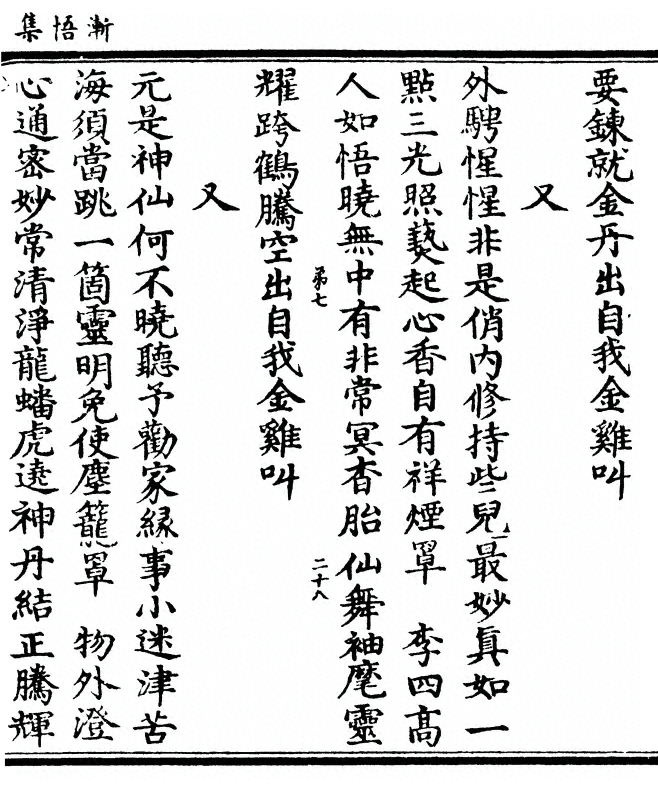 漸悟集
要鍊就金丹出自我金雞叫
又
外騁惺惺非是俏內修持些兒最妙真如一
點三光照爇起心香自有祥煙罩　李四高
人如悟曉無中有非常冥杳胎仙舞袖麾靈
第七
二十八
耀跨鶴騰空出自我金雞叫
又
元是神仙何不曉聽予勸家緣事小迷津苦
海須當跳一箇靈明免使塵籠罩　物外澄
心通密妙常清淨龍蟠虎遶神丹結正騰輝